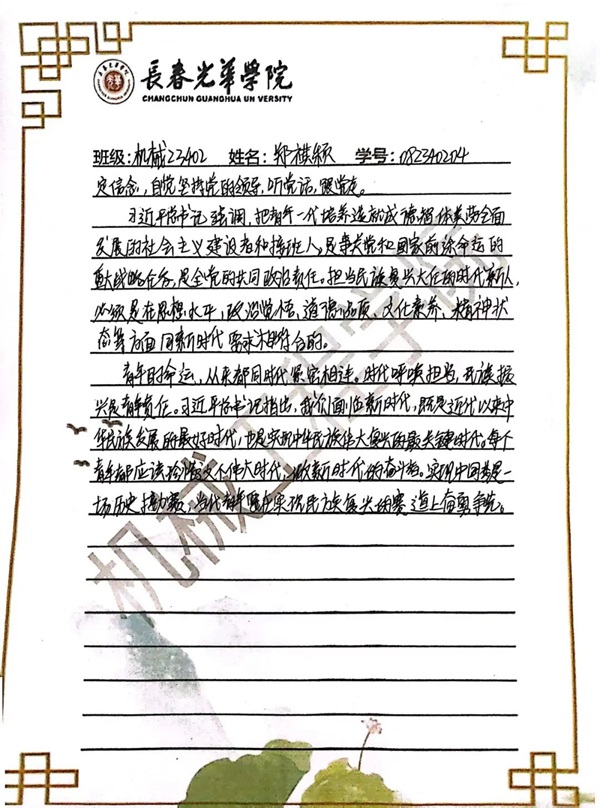 長春光華學院
CHANGCHUN GUANGHUA UN VERSITY
班级:机械23402 姓名:郑棋颖 学号:082340204
定信念,自觉坚持党的领导,听党话,跟党走。
习近平总书记强调,把青年一代培养造就成德智体美劳全面
发展的社会主义建设者和接班人,是事关党和国家前途命运的
重大战略任务,是全党的共同政治责任。担当民族复兴大任的时代新人,
必须是在思想水平、政治觉悟、道德品质、文化素养、精神状
态等方面同新时代要求相符合的。
青年的命运,从来都同时代紧密相连。时代呼唤担当,民族振
兴是青年责任。习近平总书记指出,我们面临新时代,既是近代以来中
华民族发展的最好时代,也是实现中华民族伟大复兴的最关键时代。每个
青年都应该珍惜这个伟大时代,做新时代的奋斗者。实现中国梦是一
场历史接力赛,当代青年要在实现民族复兴的赛道上奋勇争先。
机械工程学院